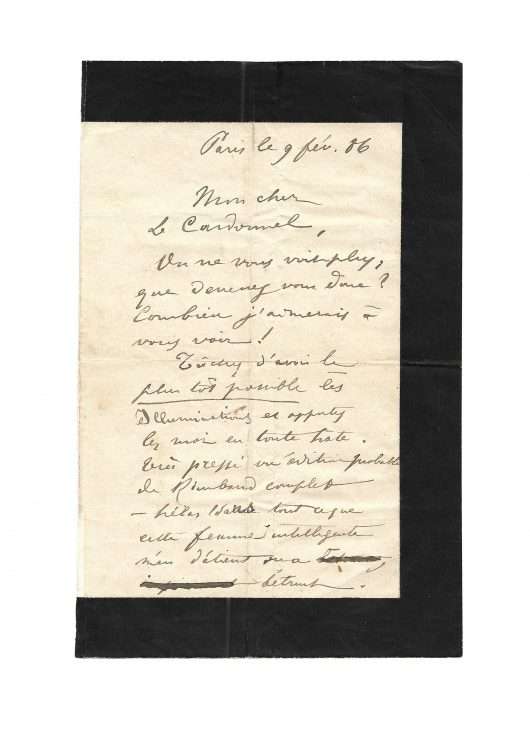 Paris le 9 fév. 86
Mon cher
Le Cardonnel,
On ne vous voit plus,
que devenez vous donc ?
Combien j'aimerais à
vous voir !
Tâchez d'avoir le
plus tôt possible les
Illuminations et apportez
les moi en toute hate.
très pressé vu édition probable
de Rimbaud complet
– hélas ! tout ce que
cette femme intelligente
m'en détient ou a
détruit.